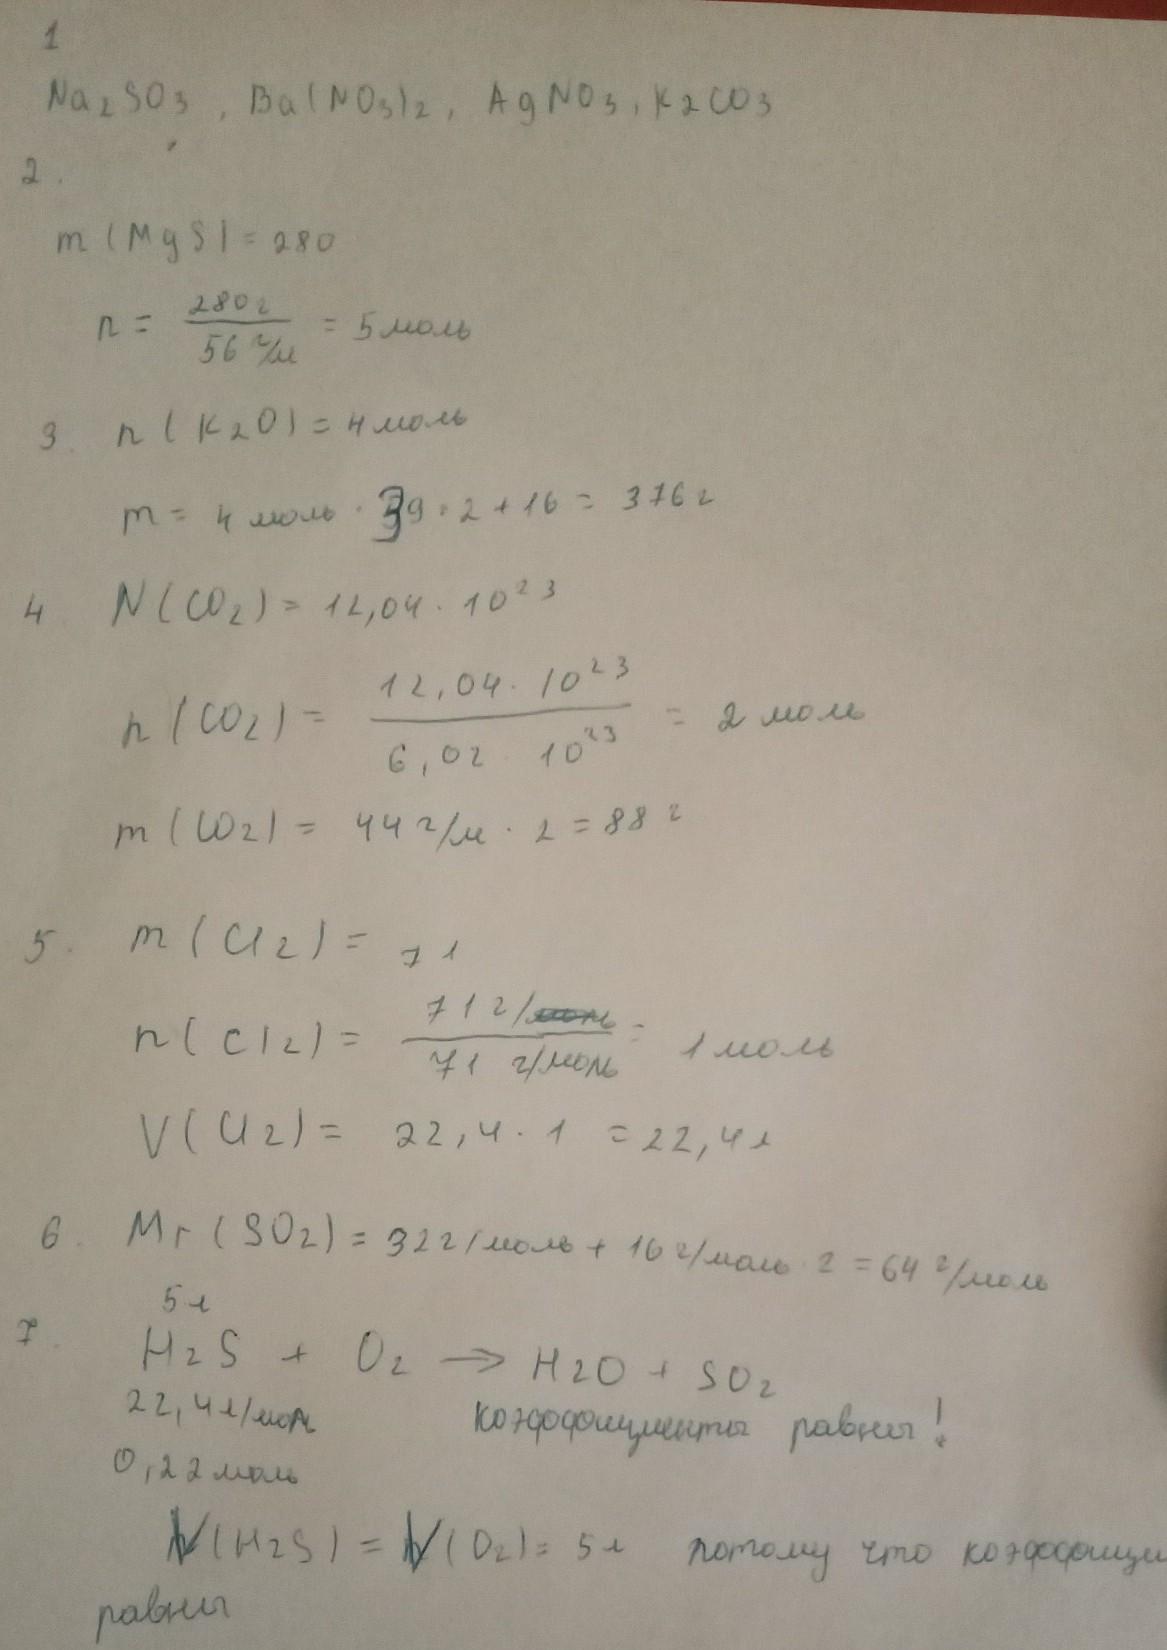 1
Na2SO3, Ba(NO3)2, AgNO3, K2CO3
2.
m(MgS) = 280
n = 280г / 56 г/м = 5 моль
3. n(K2O) = 4 моль
m = 4 моль · 39 · 2 + 16 = 376 г
4 N(CO2) = 12,04 · 10^23
n(CO2) = 12,04 · 10^23 / 6,02 · 10^23 = 2 моль
m(CO2) = 44 г/м · 2 = 88 г
5. m(Cl2) = 71
n(Cl2) = 71 г/моль / 71 г/моль = 1 моль
V(Cl2) = 22,4 · 1 = 22,4 л
6. Mr(SO2) = 32 г/моль + 16 г/моль · 2 = 64 г/моль
5 л
7. H2S + O2 → H2O + SO2
22,4 л/моль коэффициенты равны!
0,22 моль
V(H2S) = V(O2) = 5 л потому что коэффици
равны